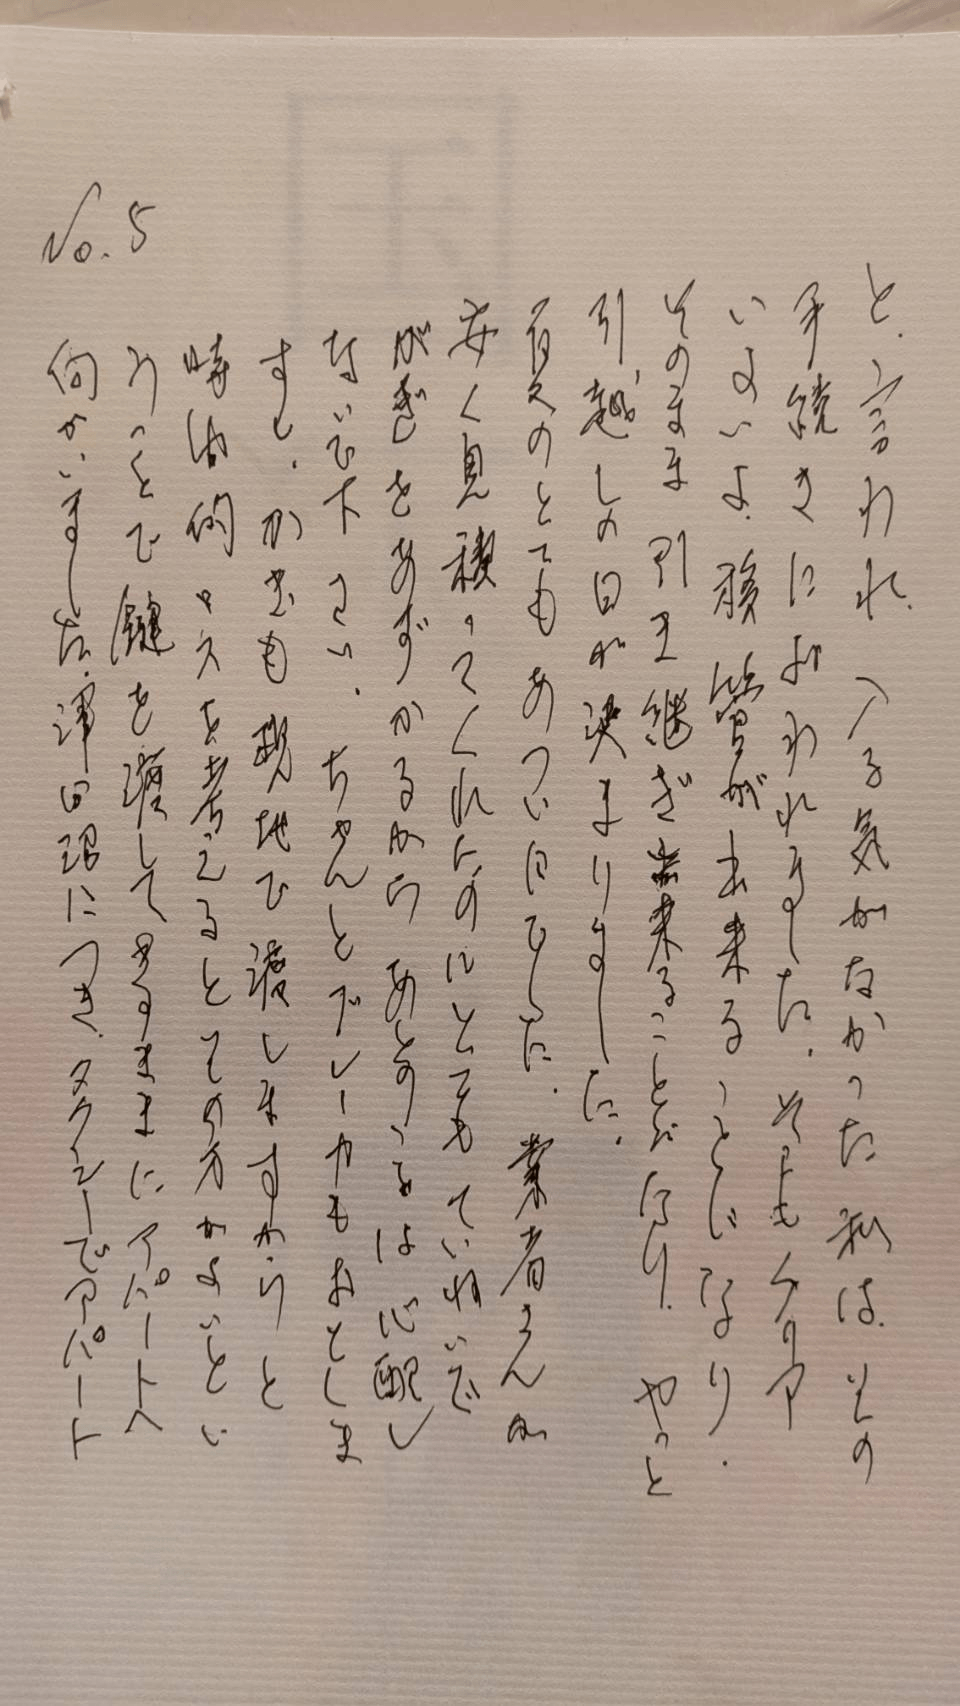 No. 5
と、言われ、入る気がなかった私は、その
手続きにおわれました。それもクリア
いよいよ、移管が出来ることになり、
そのまま引き継ぎ出来ることになり、やっと
引っ越しの日が決まりました。
夏のとてもあつい日でした。業者さんが
安く見積ってくれたのにとてもていねいで
かぎをあずかるから あとのことは心配し
ないで下さい。ちゃんとブレーカもおとしま
すし、かぎも現地で渡しますからと
時間的ロスを考えるとその方がよいとい
うことで鍵を渡してそのままにアパートへ
向かいました。津田沼につき、タクシーでアパート